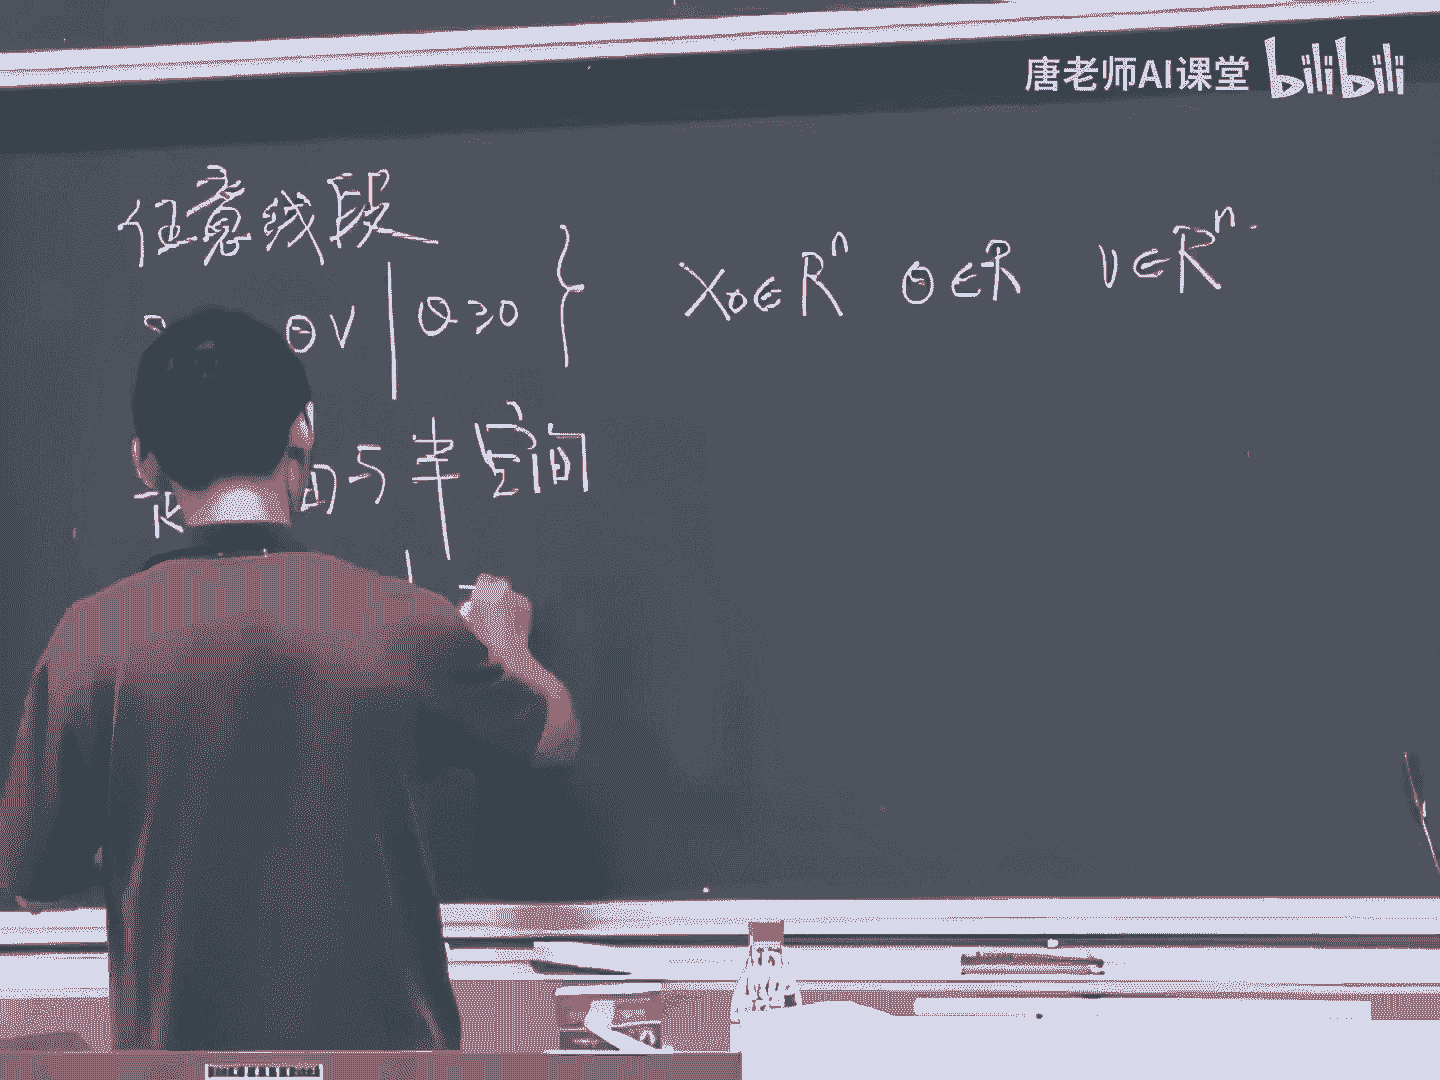 唐老师AI课堂 bilibili
任意线段
θ V | θ ≥ 0 } X₀ ∈ Rⁿ θ ∈ R V ∈ Rⁿ.
与半空间